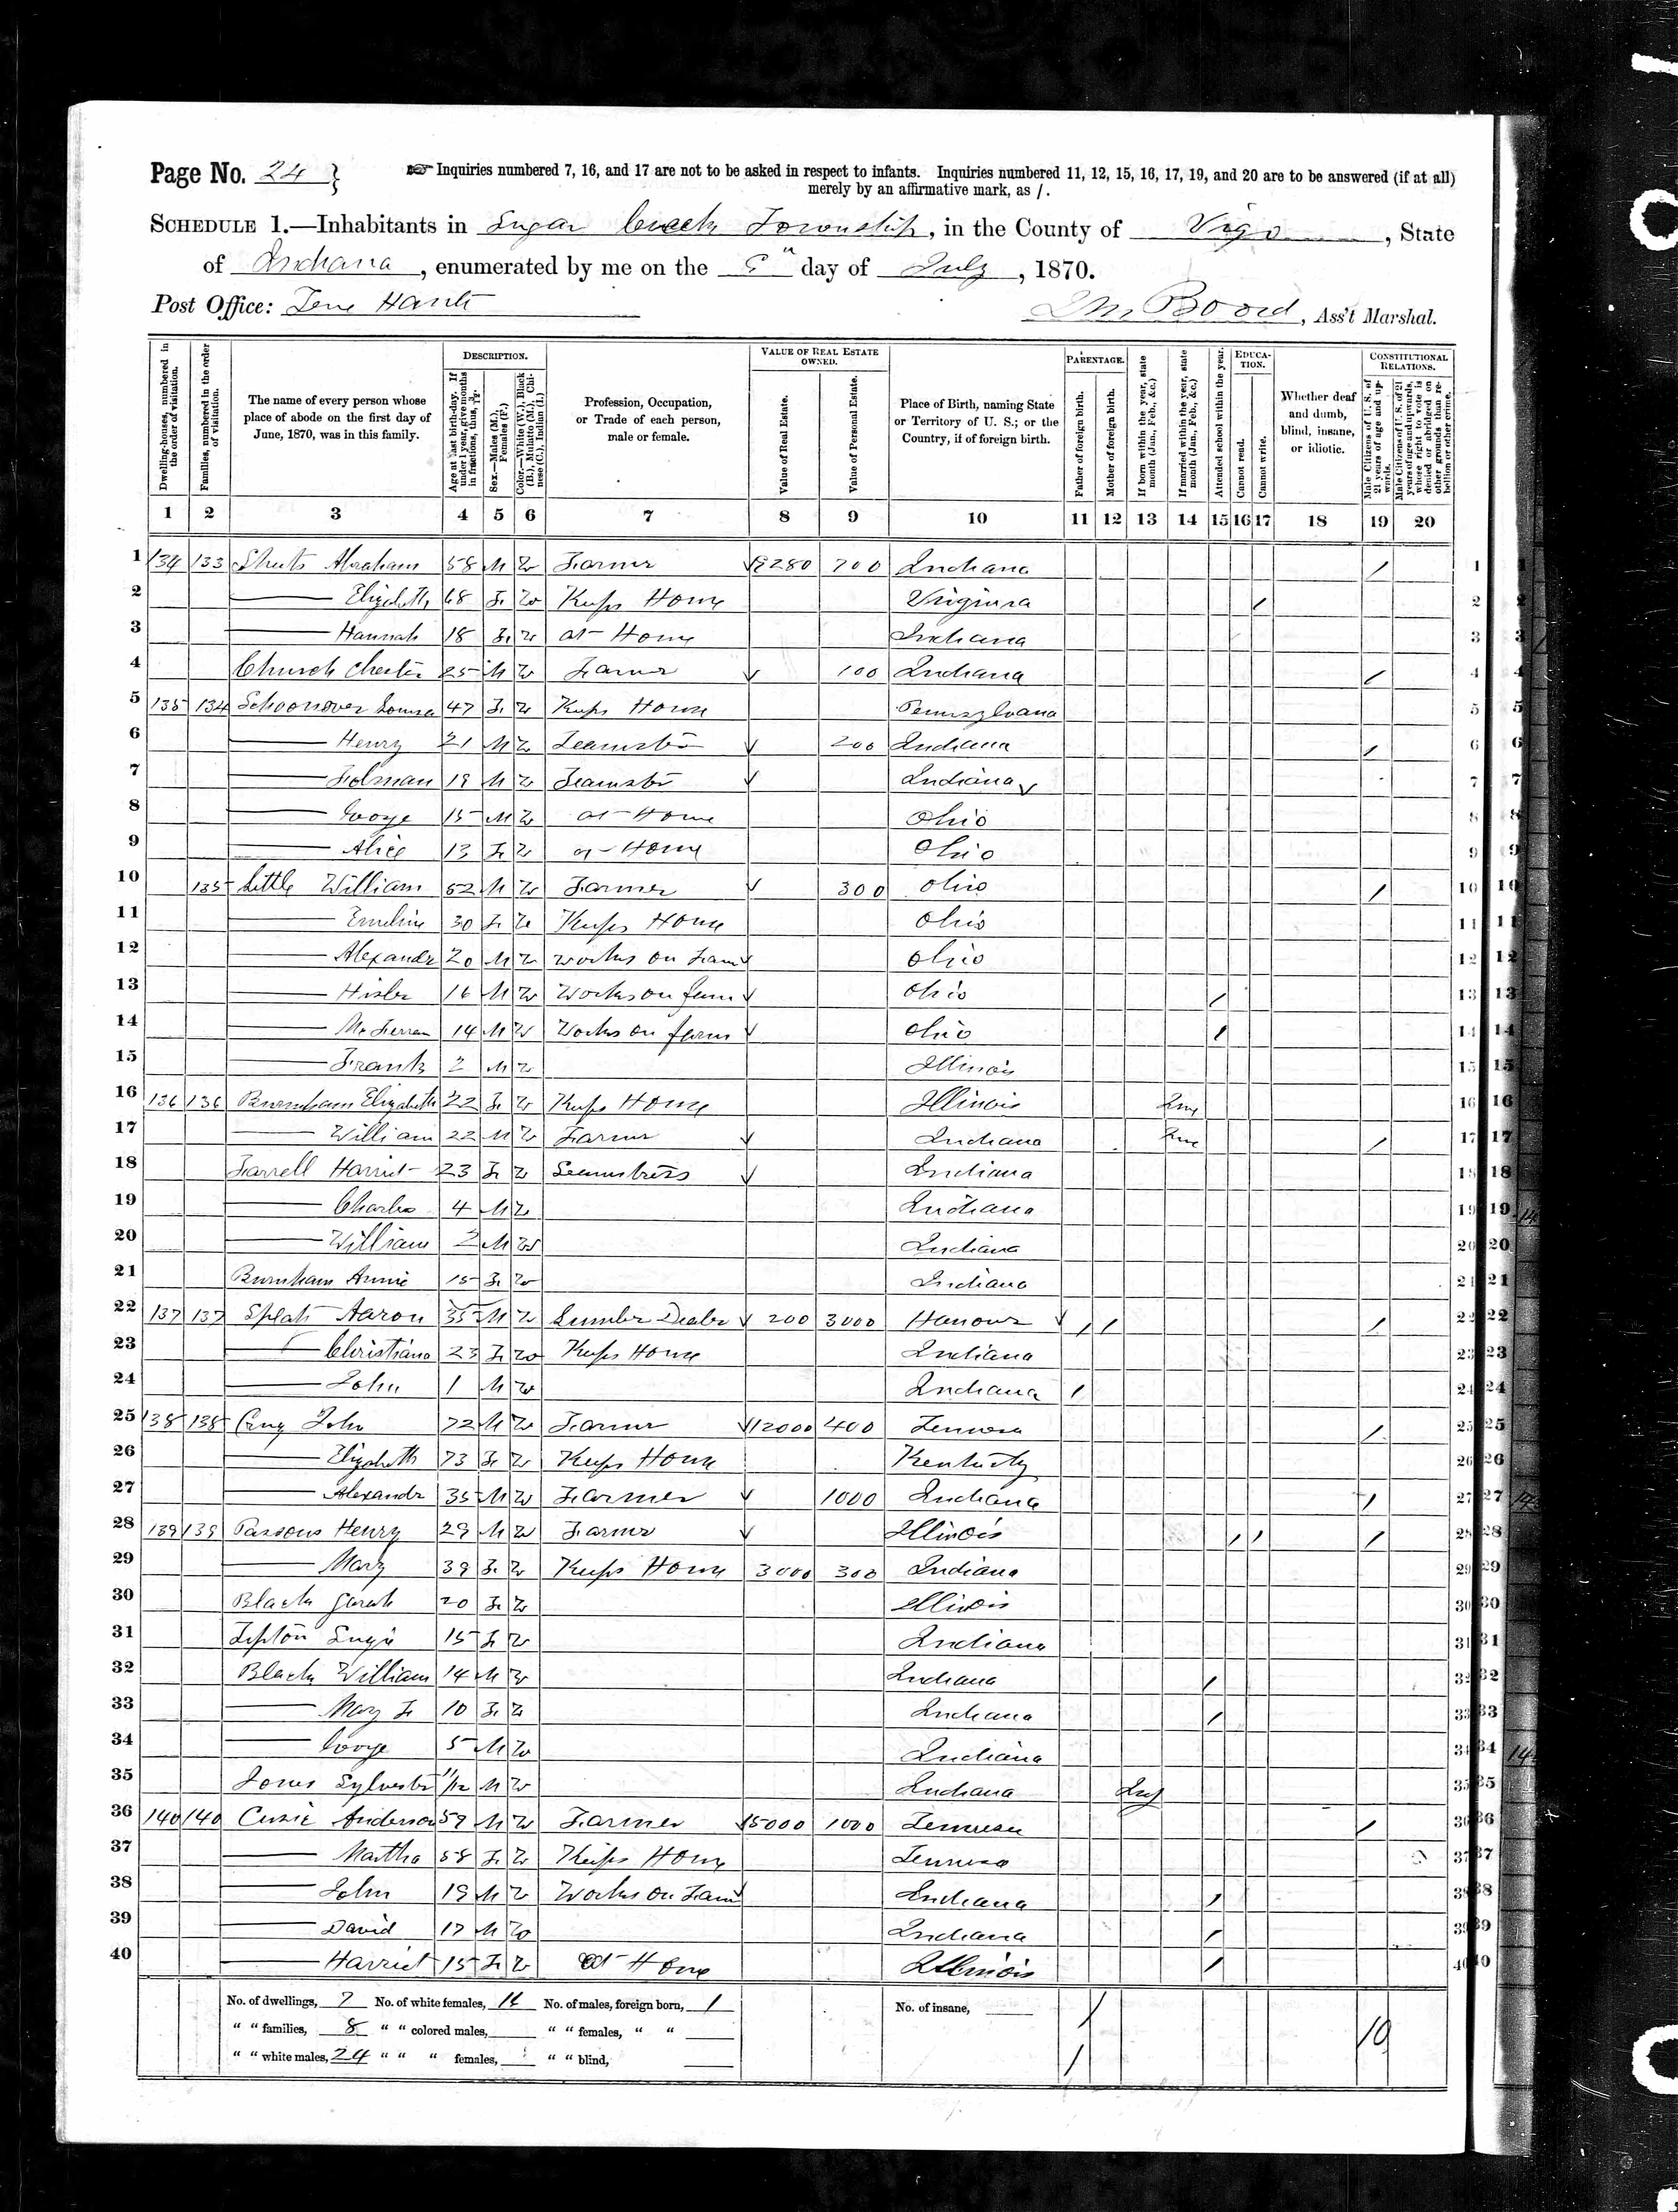 Page No. 24 } ☞ Inquiries numbered 7, 16, and 17 are not to be asked in respect to infants. Inquiries numbered 11, 12, 15, 16, 17, 19, and 20 are to be answered (if at all)
merely by an affirmative mark, as /.
SCHEDULE 1.—Inhabitants in Sugar Creek Township, in the County of Vigo, State
of Indiana, enumerated by me on the day of July, 1870.
Post Office: Terre Haute
Boord, Ass't Marshal.
Dwelling-houses, numbered in the order of visitation.
Families, numbered in the order of visitation.
The name of every person whose place of abode on the first day of June, 1870, was in this family.
DESCRIPTION.
Age at last birth-day. If under 1 year, give months in fractions, thus, 3/12.
Sex.—Males (M.), Females (F.)
Color.—White (W.), Black (B.), Mulatto (M.), Chinese (C.), Indian (I.)
Profession, Occupation, or Trade of each person, male or female.
VALUE OF REAL ESTATE OWNED.
Value of Real Estate.
Value of Personal Estate.
Place of Birth, naming State or Territory of U. S.; or the Country, if of foreign birth.
PARENTAGE.
Father of foreign birth.
Mother of foreign birth.
If born within the year, state month (Jan., Feb., &c.)
If married within the year, state month (Jan., Feb., &c.)
Attended school within the year.
EDUCATION.
Cannot read.
Cannot write.
Whether deaf and dumb, blind, insane, or idiotic.
CONSTITUTIONAL RELATIONS.
Male Citizens of U. S. of 21 years of age and upwards.
Male Citizens of U. S. of 21 years of age and upwards, whose right to vote is denied or abridged on other grounds than rebellion or other crime.
1 2 3 4 5 6 7 8 9 10 11 12 13 14 15 16 17 18 19 20
1 134 133 Abraham 58 M W Farmer 9280 700 Indiana / 1
2 — Elizabeth 68 F W Keeps House Virginia / 2
3 — Hannah 18 F W at Home Indiana 3
4 Church Chester 25 M W Farmer 100 Indiana / 4
5 135 134 Schoonover Louisa 47 F W Keeps House Pennsylvana 5
6 — Henry 21 M W Teamster 200 Indiana / 6
7 — 19 M W Teamster Indiana 7
8 — George 15 M W at Home Ohio 8
9 — Alice 13 F W at Home Ohio 9
10 135 Little William 52 M W Farmer 300 Ohio / 10
11 — Emeline 30 F W Keeps House Ohio 11
12 — Alexandr 20 M W Works on Farm Ohio 12
13 — 16 M W Works on farm Ohio / 13
14 — 14 M W Works on farm Ohio / 14
15 — Frank 2 M W Illinois 15
16 136 136 Burnham Elizabeth 22 F W Keeps House Illinois 16
17 — William 22 M W Farmer Indiana / 17
18 Farrell Harriet 23 F W Seamstress Indiana 18
19 — Charles 4 M W Indiana 19
20 — William 2 M W Indiana 20
21 Burnham Annie 15 F W Indiana 21
22 137 137 Aaron 35 M W Lumber Dealer 200 3000 Hanover / / / 22
23 — Christiana 23 F W Keeps House Indiana 23
24 — John 1 M W Indiana / 24
25 138 138 John 72 M W Farmer 12000 400 / 25
26 — Elizabeth 73 F W Keeps House Kentucky 26
27 — Alexandr 35 M W Farmer 1000 Indiana / 27
28 139 139 Parsons Henry 29 M W Farmer Illinois / / / 28
29 — Mary 39 F W Keeps House 3000 300 Indiana 29
30 Black Sarah 20 F W Illinois 30
31 15 F W Indiana 31
32 Black William 14 M W Indiana / 32
33 — Mary F 10 F W Indiana / 33
34 — George 5 M W Indiana 34
35 Jones Sylvester 11/12 M W Indiana 35
36 140 140 Cusic Anderson 59 M W Farmer 15000 1000 Tennessee / 36
37 — Martha 58 F W Keeps House 37
38 — John 19 M W Works on Farm Indiana / 38
39 — David 17 M W Indiana / 39
40 — Harriet 15 F W at Home Illinois / 40
No. of dwellings, 7 No. of white females, 16 No. of males, foreign born, 1 No. of insane, /
" " families, 8 " " colored males, " " females, " " 10
" " white males, 24 " " " females, " " blind, /